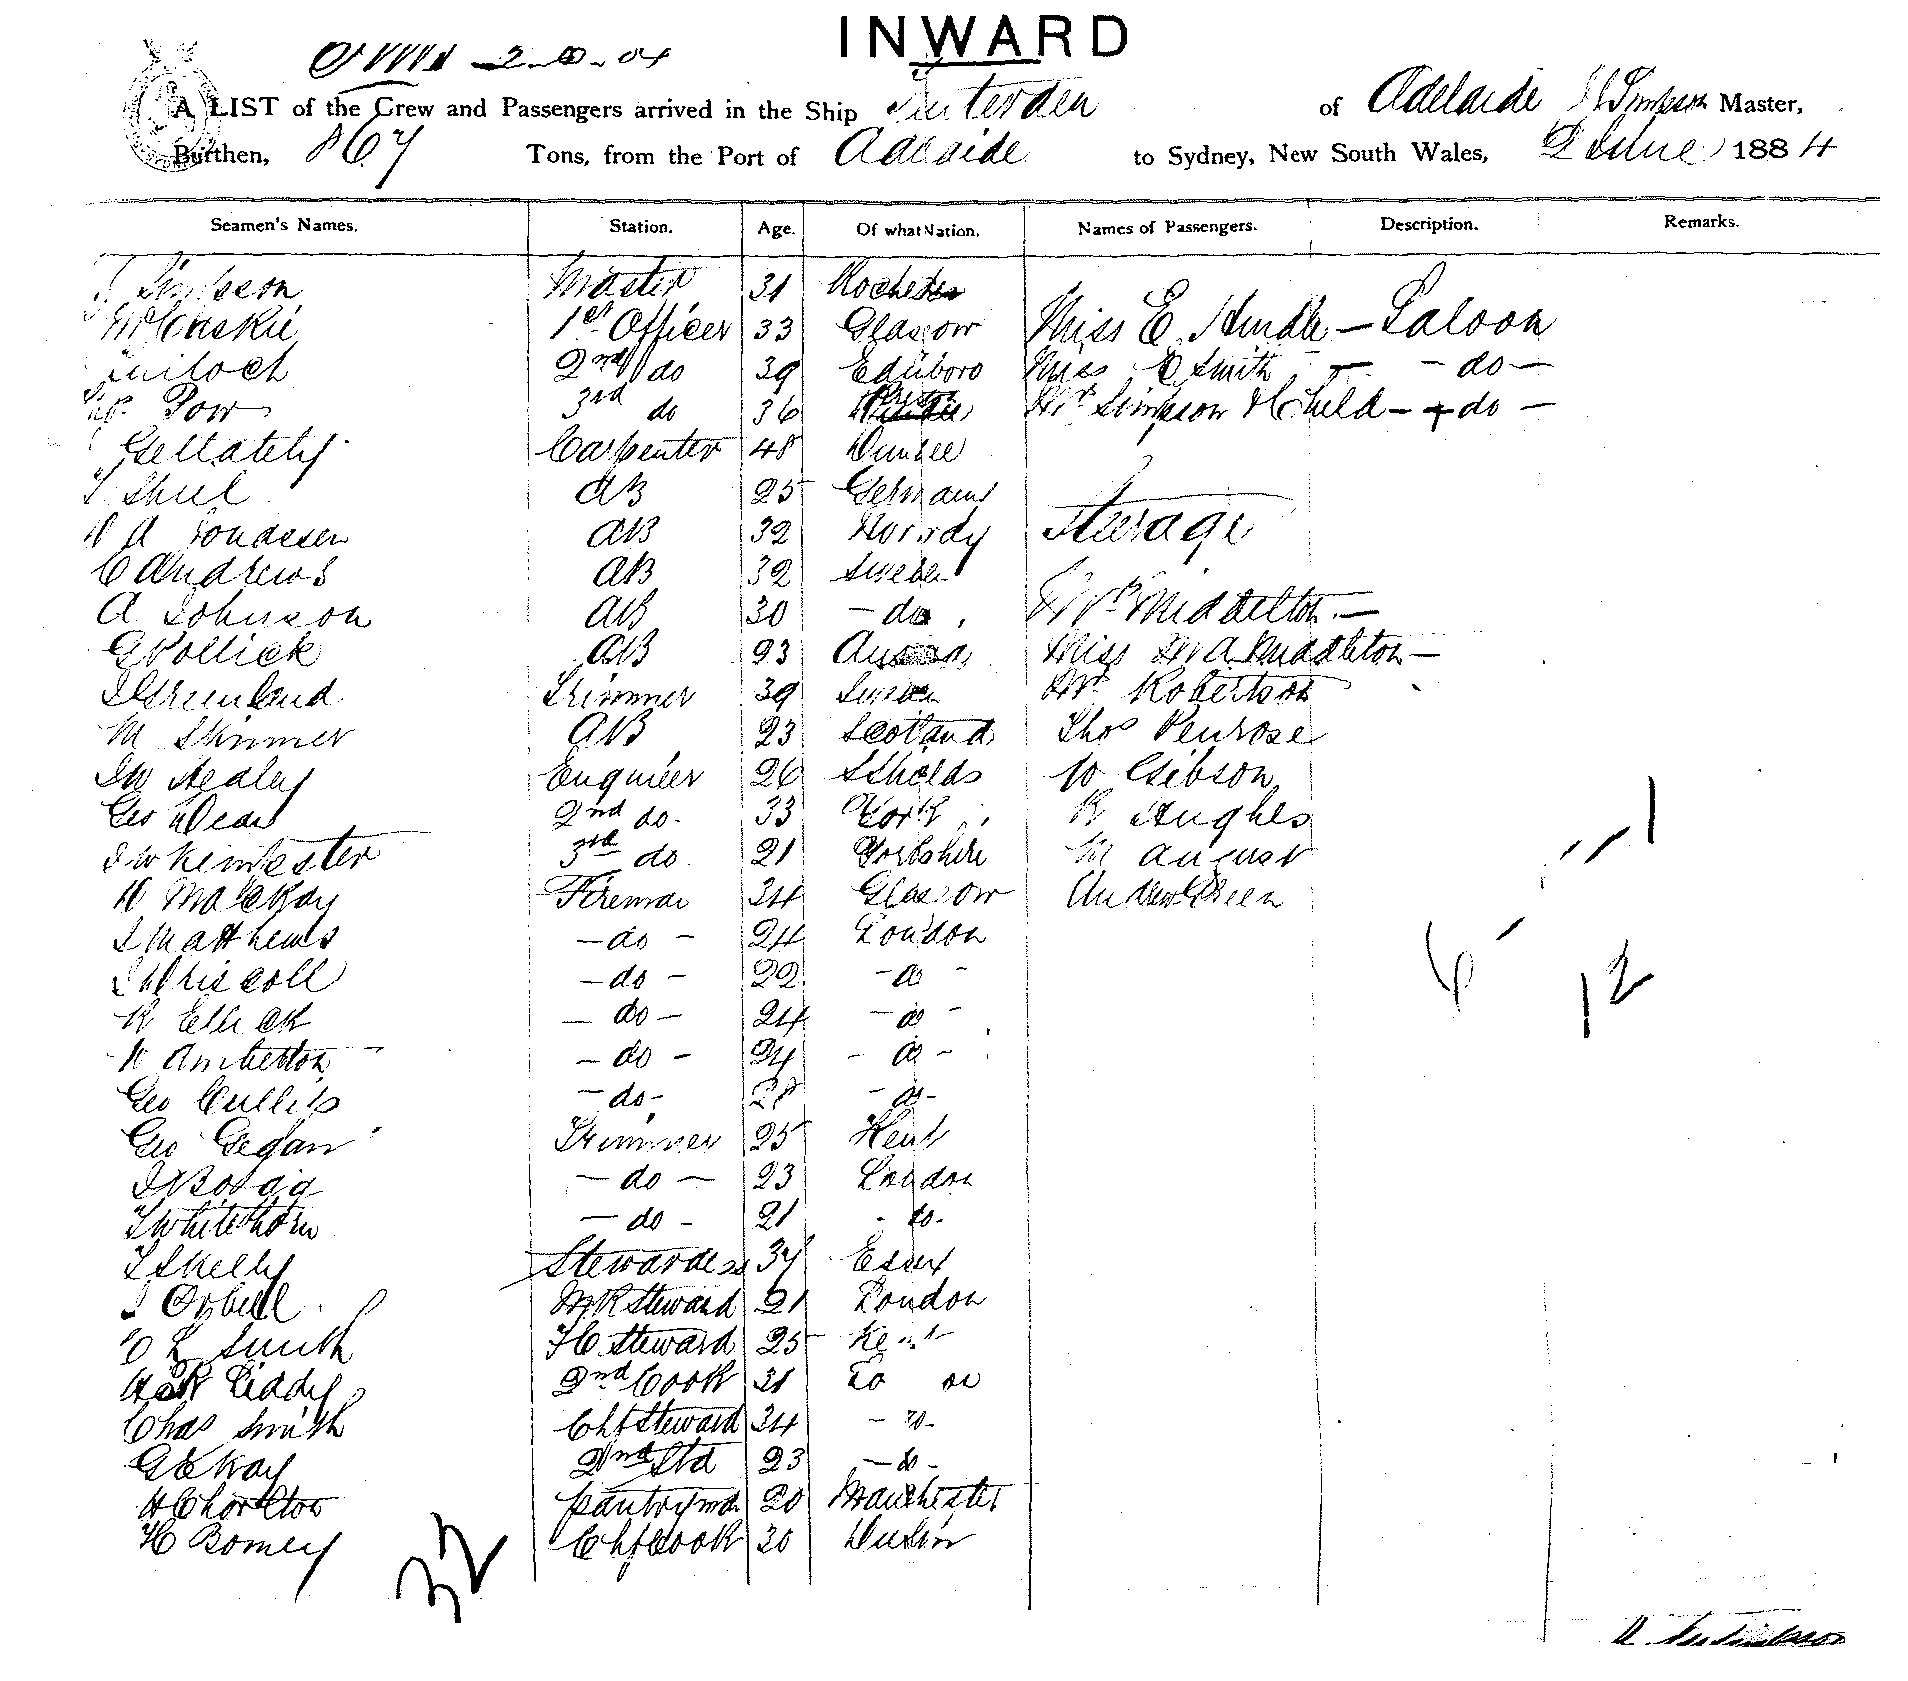 INWARD
A LIST of the Crew and Passengers arrived in the Ship Tenterden of Adelaide J Simpson Master,
Burthen, 867 Tons, from the Port of Adelaide to Sydney, New South Wales, 2 June 1884
Seamen's Names. Station. Age. Of what Nation. Names of Passengers. Description. Remarks.
J Simpson Master 31 Rochester
McCaskie 1st Officer 33 Glasgow Miss E Hindle — Saloon
2nd do 39 Edinboro Miss E Smith — - do —
Pow 3rd do 36 Mrs Simpson & Child - + do —
Gellately Carpenter 48 Dundee
Shiel AB 25 Germany
AB 32 Norway Steerage
C Andrews AB 32 Sweden
A Johnson AB 30 — do Mrs Middelton —
G Pollick AB 23 Miss M A Middleton —
J Greenland Trimmer 39 Sweden Mr Robertson
M Skinner AB 23 Scotland Thos Penrose
J W Healey Engineer 26 S Shields W Gibson
Geo Dean 2nd do - 33 York R Hughes
J W Kimbester 3rd do 21 Yorkshire M August
W Mackay Fireman 34 Glasgow Andrew Green
J Matthews — do - 24 London
J Driscoll — do - 22 - do -
R Ellick — do — 24 - do -
W Amberton — do - 24 - do -
Geo Cullip — do - 28 - do -
Geo Gegan Trimmer 25 Kent
— do — 23 London
T Whitethorn — do - 21 - do -
T Skelly Stewardess 37 Essex
J Orbell M R Steward 21 London
C L Smith F C Steward 25 Kent
Liddy 2nd Cook 31 London
Chas Smith Chf Steward 34 - do -
G E Kay 2nd Std 23 — do -
H Chorlton Pantryman 20 Manchester
H Bomey Chf Cook 30 Dublin
6
12
32